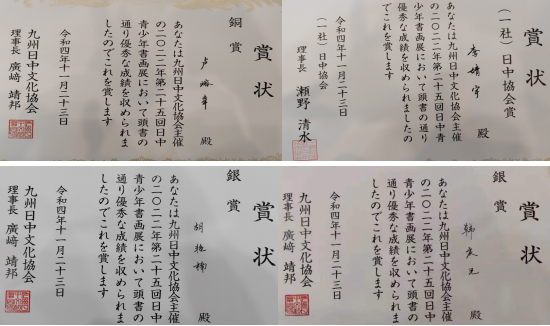 銅賞
殿
あなたは九州日中文化協会主催
の二〇二二年第二十五回日中
青少年書画展において頭書の
通り優秀な成績を収められま
したのでこれを賞します
令和四年十一月二十三日
九州日中文化協会
理事長 廣﨑 靖邦
賞状
(一社)日中協会賞
李靖宇 殿
あなたは九州日中文化協会主催
の二〇二二年第二十五回日中青
少年書画展において頭書の通り
優秀な成績を収められましたの
でこれを賞します
令和四年十一月二十三日
(一社)日中協会
理事長 瀬野 清水
賞状
銀賞
胡 殿
あなたは九州日中文化協会主催
の二〇二二年第二十五回日中
青少年書画展において頭書の
通り優秀な成績を収められま
したのでこれを賞します
令和四年十一月二十三日
九州日中文化協会
理事長 廣﨑 靖邦
賞状
銀賞
韩 殿
あなたは九州日中文化協会主催
の二〇二二年第二十五回日中
青少年書画展において頭書の
通り優秀な成績を収められま
したのでこれを賞します
令和四年十一月二十三日
九州日中文化協会
理事長 廣﨑 靖邦